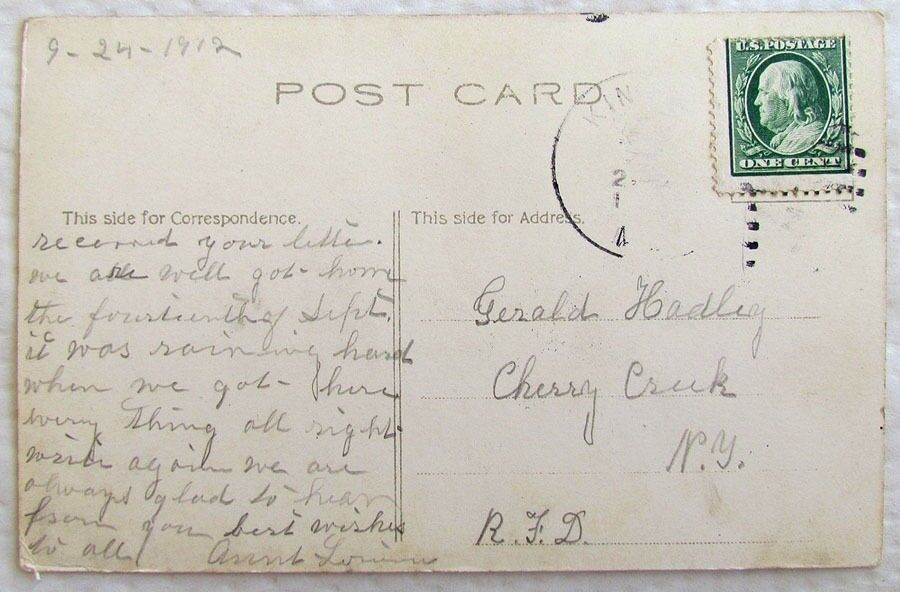 9-24-1912
POST CARD
U.S. POSTAGE
ONE CENT
KIN
2
1
A
This side for Correspondence.
This side for Address.
your letter.
we are well got home
the fourteenth of Sept.
it was raining hard
when we got here
every thing all right
write again we are
always glad to hear
from you best wishes
to all Aunt
Gerald Hadley
Cherry Creek
N.Y.
R.F.D.